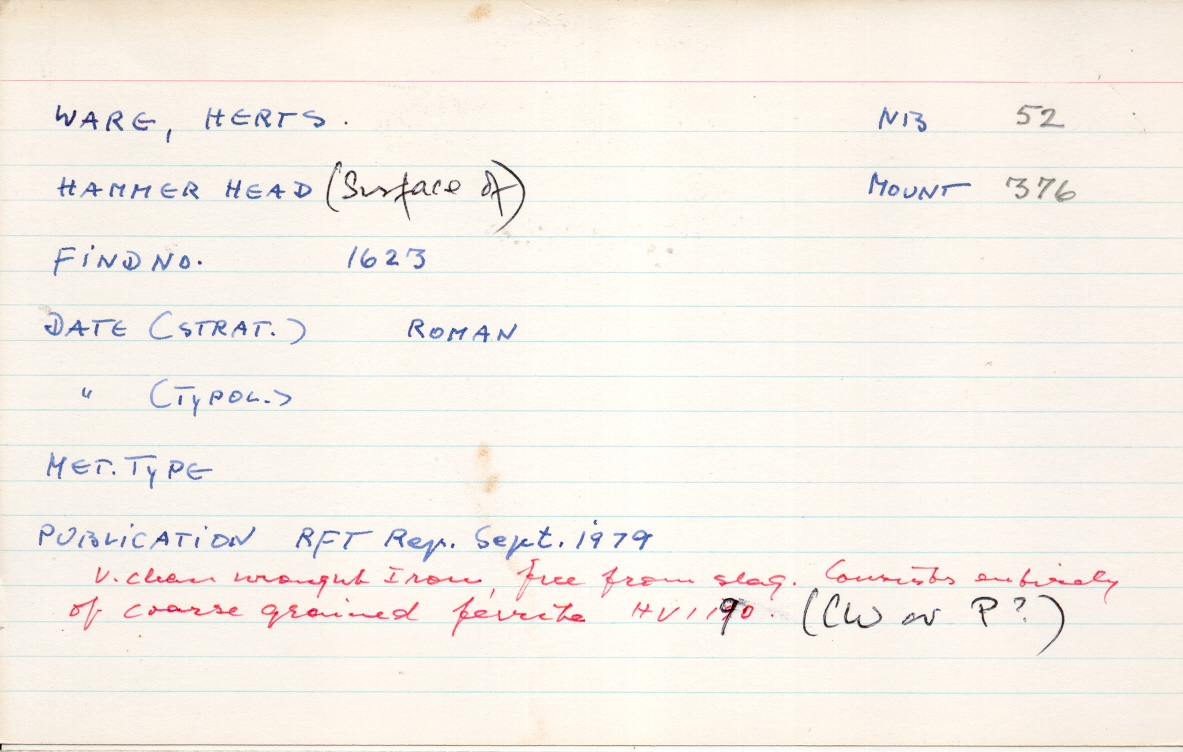 WARE, HERTS. NB 52
HAMMER HEAD (Surface of) MOUNT 376
FIND NO. 1623
DATE (STRAT.) ROMAN
" (TYPOL.)
MET. TYPE
PUBLICATION RFT Rep. Sept. 1979
V. clean wrought Iron, free from slag. Consists entirely
of coarse grained ferrite HV1 190. (CW or P?)